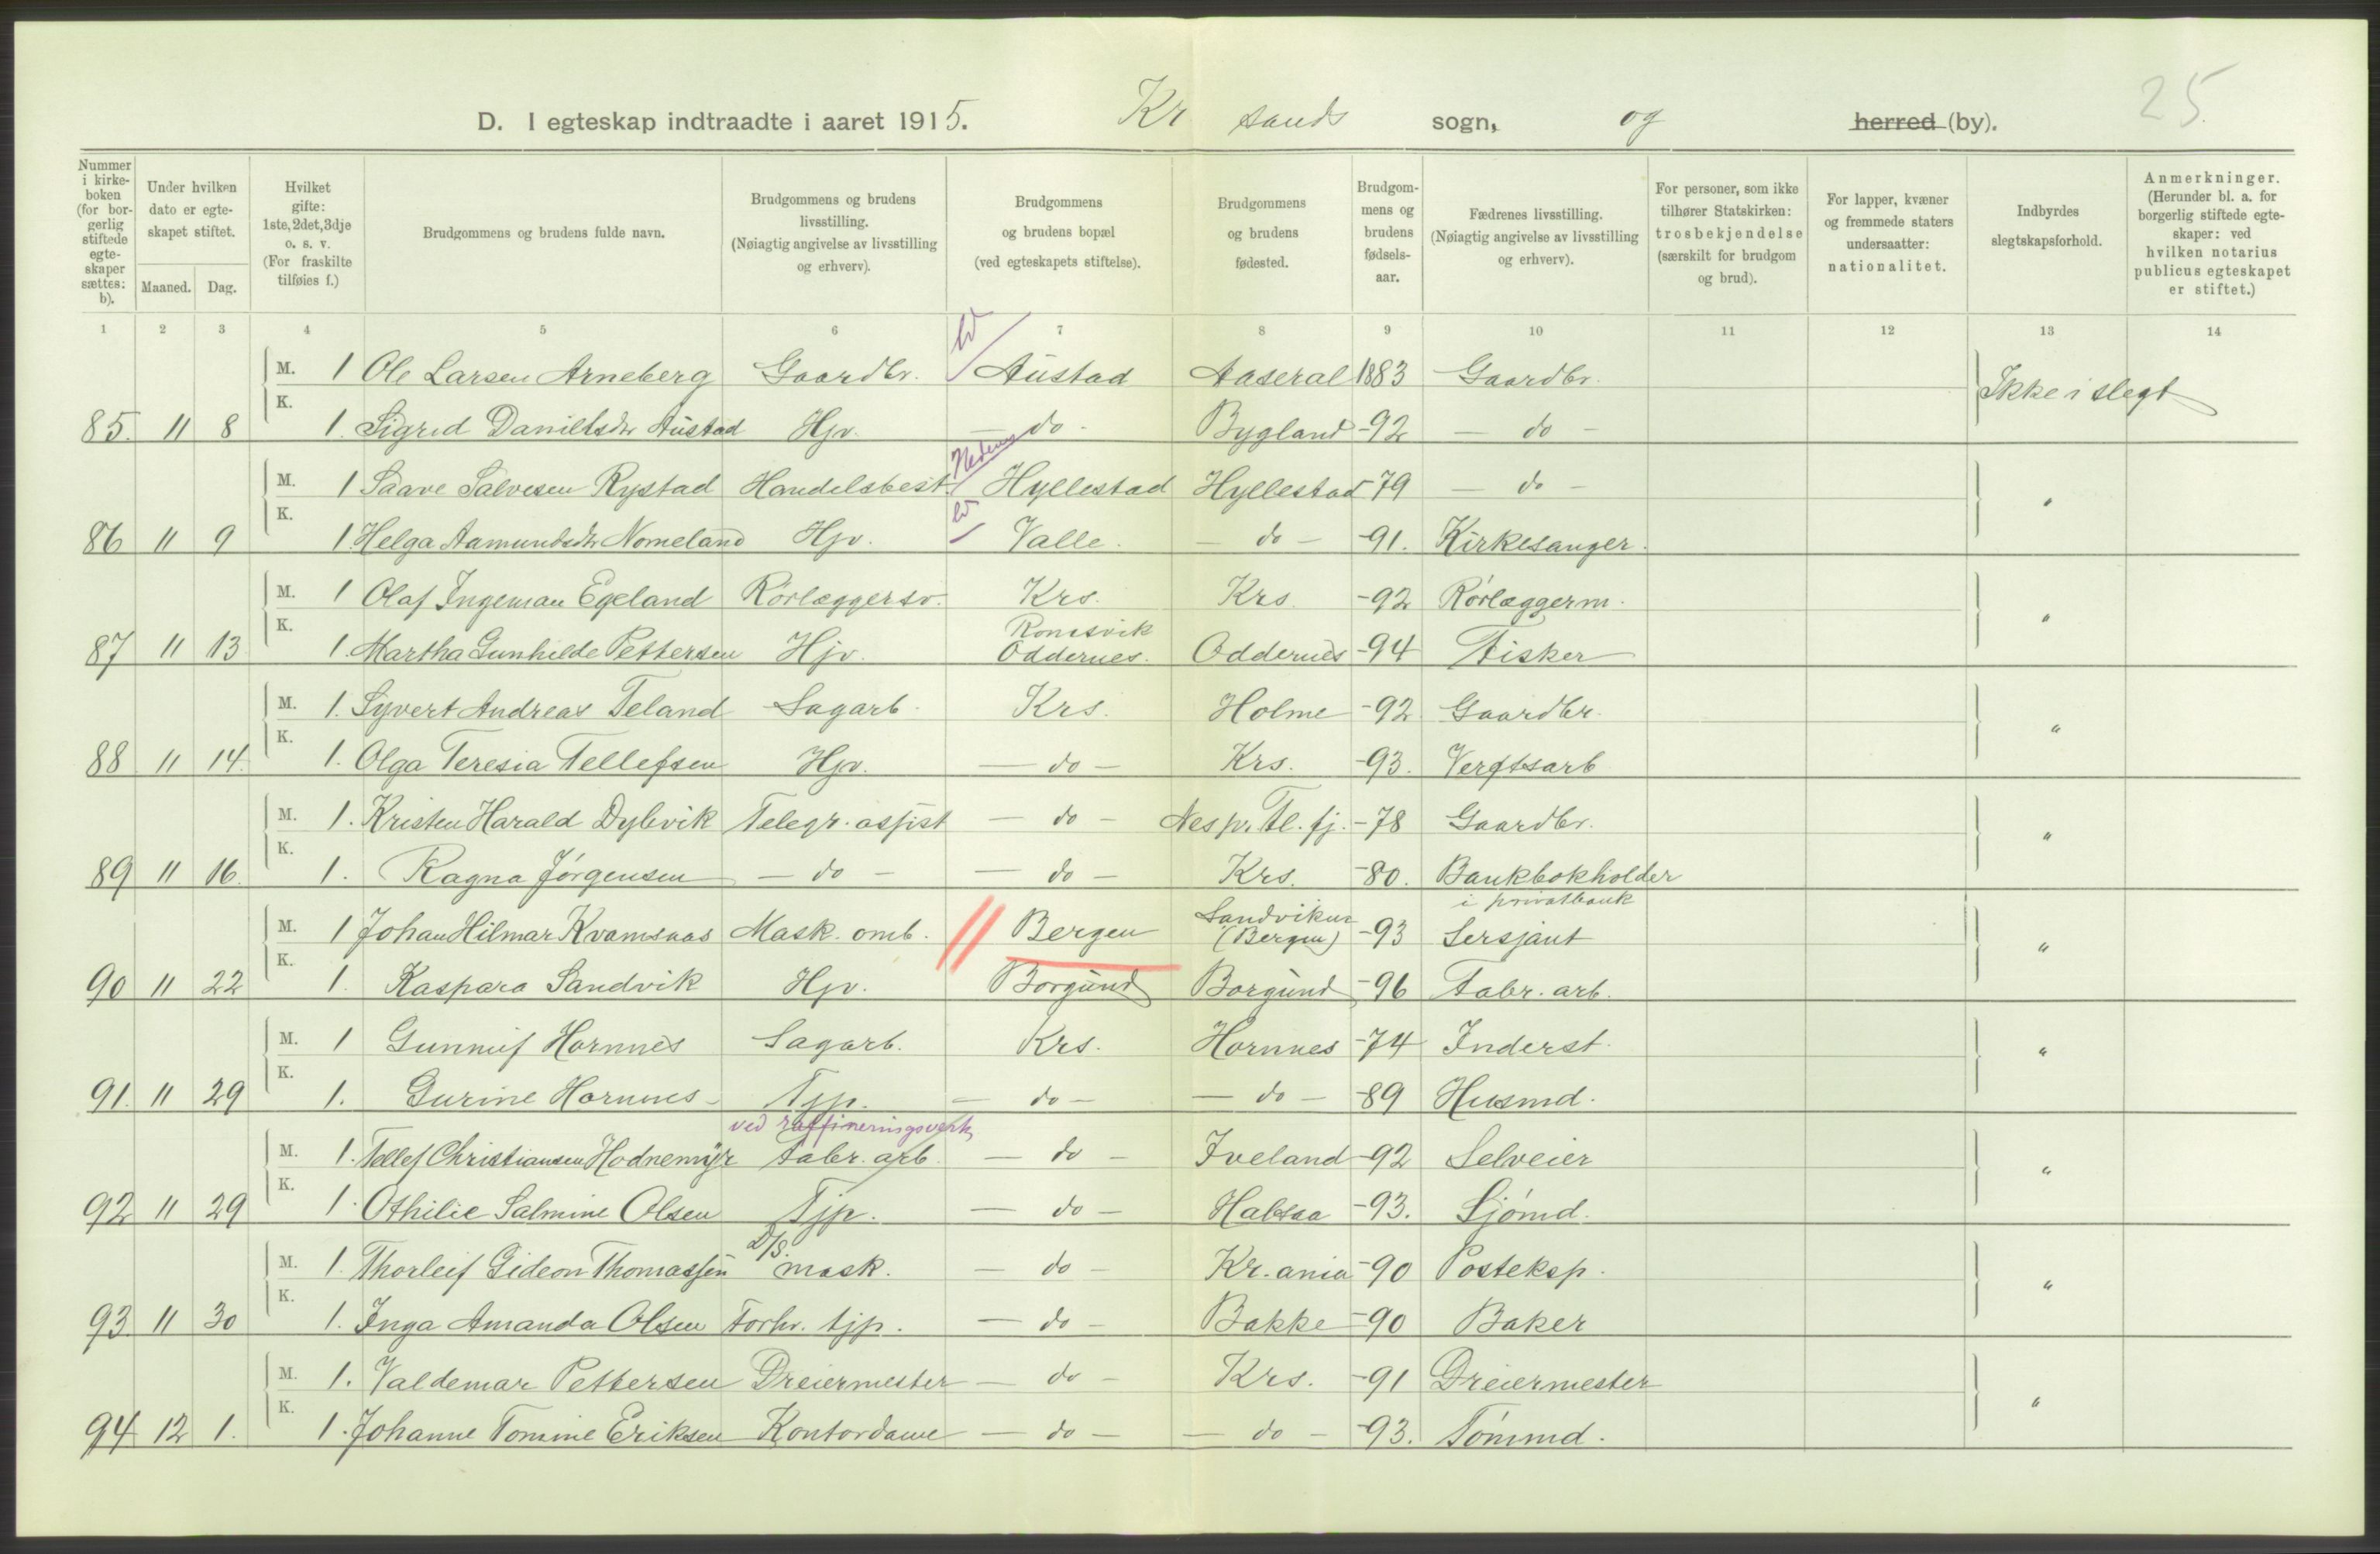 25.
D. I egteskap indtraadte i aaret 1915. Kr sands sogn, og herred (by).
Nummer i kirke-boken (for bor-gerlig stiftede egte-skaper sættes: b).
Under hvilken dato er egte-skapet stiftet.
Maaned. Dag.
Hvilket gifte: 1ste, 2det, 3dje o. s. v. (For fraskilte tilføies f.)
Brudgommens og brudens fulde navn.
Brudgommens og brudens livsstilling. (Nøiagtig angivelse av livsstilling og erhverv).
Brudgommens og brudens bopæl (ved egteskapets stiftelse).
Brudgommens og brudens fødested.
Brudgom-mens og brudens fødsels-aar.
Fædrenes livsstilling. (Nøiagtig angivelse av livsstilling og erhverv).
For personer, som ikke tilhører Statskirken: trosbekjendelse (særskilt for brudgom og brud).
For lapper, kvæner og fremmede staters undersaatter: nationalitet.
Indbyrdes slegtskapsforhold.
Anmerkninger. (Herunder bl. a. for borgerlig stiftede egte-skaper: ved hvilken notarius publicus egteskapet er stiftet.)
1 2 3 4 5 6 7 8 9 10 11 12 13 14
M. 1 Ole Larsen Arneberg Gaardbr. Austad Aaseral 1883 Gaardbr. Ikke i slegt
85. 11 8 K. 1. Sigrid Danielsdtr Austad Hjv. - do - Bygland -92 - do -
M. 1 Saave Salvesen Rystad Handelsbest. Hyllestad Hyllestad -79 - do - "
86 11 9 K. 1. Helga Aamundsdtr Nomeland Hjv. Valle. - do - -91. Kirkesanger.
M. 1 Olaf Ingeman Egeland Rørlæggersv. Krs. Krs. -92 Rørlæggerm. "
87 11 13 K. 1. Martha Gunhilde Pettersen Hjv. Ronesvik Oddernes. Oddernes -94 Fisker
M. 1. Syvert Andreas Teland Sagarb. Krs. Holme -92 Gaardbr. "
88 11 14. K. 1. Olga Teresia Tellefsen Hjv. - do - Krs. -93. Verftsarb
M. 1. Kristen Harald Dybvik Telegr. assist - do - Nes pr. Fl. fj. -78 Gaardbr. "
89 11 16. K. 1. Ragna Jørgensen - do - - do - Krs. -80. Bankbokholder i privatbank
M. 1 Johan Hilmar Kvamsaas Mask. omb. Bergen Sandviken (Bergen) -93 Sersjant "
90 11 22 K. 1. Kaspara Sandvik Hjv. Borgund Borgund -96 Fabr. arb.
M. 1 Gunnuf Hornnes Sagarb. Krs. Hornnes -74 Inderst. "
91. 11 29 K. 1. Gurine Hornnes Tjp. - do - - do - -89 Husmd.
ved raffineringsverk
M. 1. Tellef Christiansen Hodnemyr Fabr. arb. - do - Iveland -92 Selveier "
92 11 29 K. 1. Othilie Salmine Olsen Tjp. - do - Halsaa -93. Sjømd.
M. 1. Thorleif Gideon Thomassen D/S. mask. - do - Kr.ania -90 Posteksp. "
93 11 30 K. 1. Inga Amanda Olsen Forhv. tjp. - do - Bakke -90 Baker
M. 1. Valdemar Pettersen Dreiermester - do - Krs. -91 Dreiermester "
94 12 1. K. 1. Johanne Tomine Eriksen Kontordame - do - - do - -93. Tømmd.